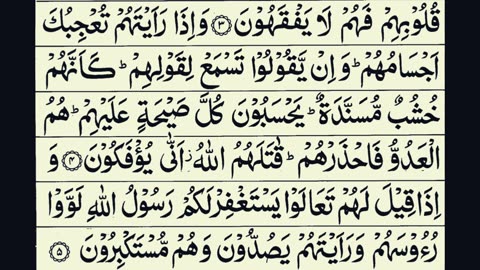 قُلُوۡبِهِمۡ فَهُمۡ لَا يَفۡقَهُوۡنَ ﴿۳﴾ وَاِذَا رَاَيۡتَهُمۡ تُعۡجِبُكَ
اَجۡسَامُهُمۡ ؕ وَاِنۡ يَّقُوۡلُوۡا تَسۡمَعۡ لِقَوۡلِهِمۡ ؕ كَاَنَّهُمۡ
خُشُبٌ مُّسَنَّدَةٌ ؕ يَحۡسَبُوۡنَ كُلَّ صَيۡحَةٍ عَلَيۡهِمۡ ؕ هُمُ
الۡعَدُوُّ فَاحۡذَرۡهُمۡ ؕ قٰتَلَهُمُ اللّٰهُ ز اَنّٰى يُؤۡفَكُوۡنَ ﴿۴﴾ وَ
اِذَا قِيۡلَ لَهُمۡ تَعَالَوۡا يَسۡتَغۡفِرۡلَكُمۡ رَسُوۡلُ اللّٰهِ لَوَّوۡا
رُءُوۡسَهُمۡ وَرَاَيۡتَهُمۡ يَصُدُّوۡنَ وَهُمۡ مُّسۡتَكۡبِرُوۡنَ ﴿۵﴾